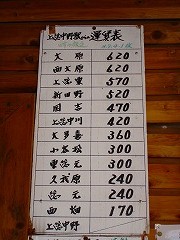 上総中野駅 運賃表
大原 620
西大原 620
上総東 570
新田野 520
国吉 470
上総中川 420
大多喜 360
小谷松 300
東総元 300
久我原 240
総元 240
西畑 170
上総中野